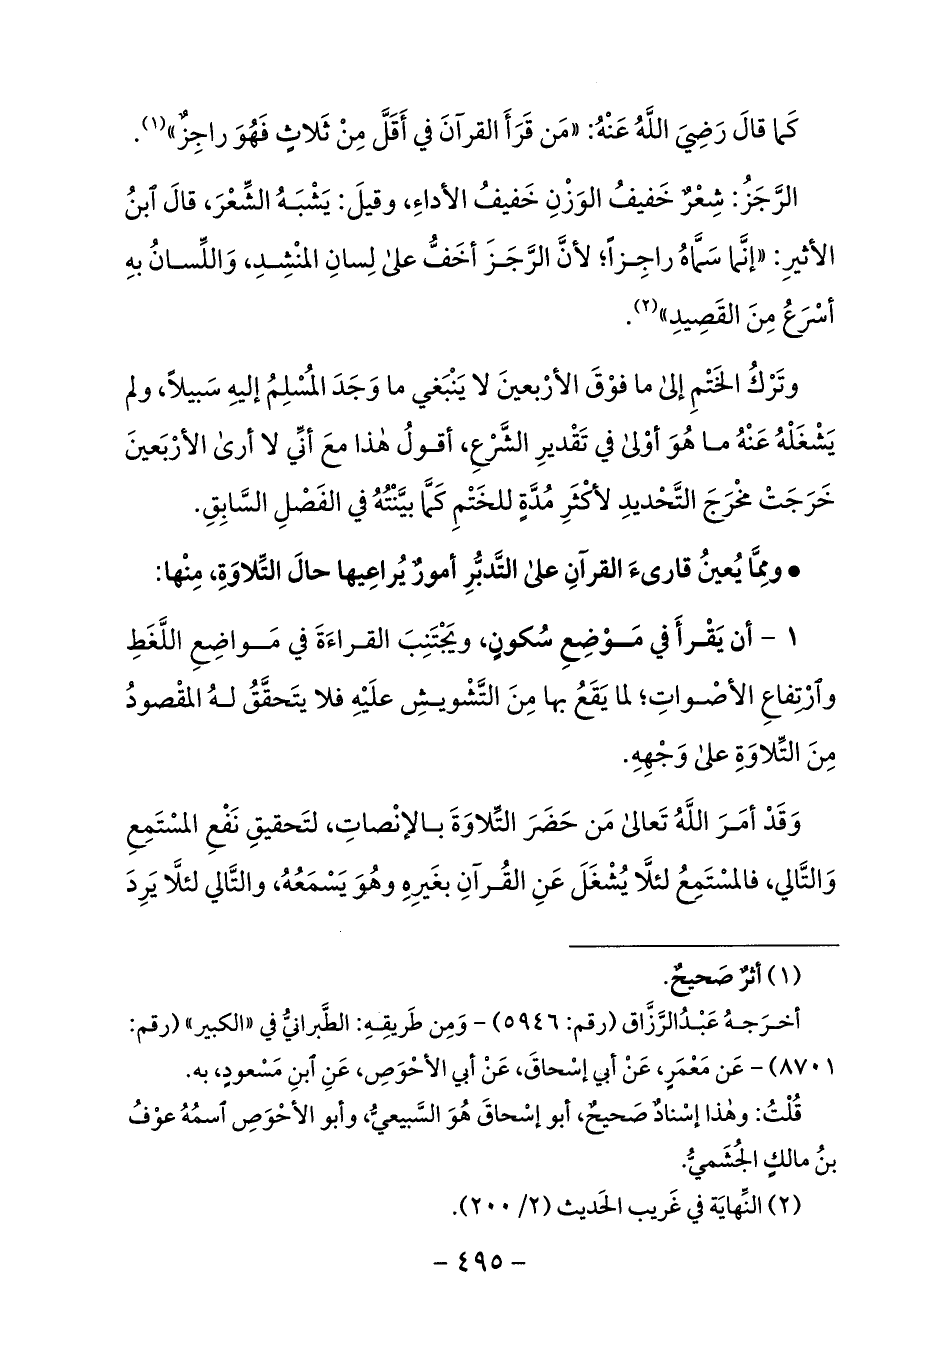 كَما قالَ رَضِيَ اللَّهُ عَنْهُ: «مَن قَرَأَ القرآنَ في أَقَلَّ مِنْ ثَلاثٍ فَهُوَ راجِزٌ»(١).
الرَّجَزُ: شِعْرٌ خَفيفُ الوَزْنِ خَفيفُ الأداءِ، وقيلَ: يَشْبَـهُ الشِّعْرَ، قالَ ٱبنُ
الأثيرِ: «إنَّما سَمَّاهُ راجِـزاً؛ لأنَّ الرَّجَـزَ أخَفُّ على لِسانِ المنْشِـدِ، وَاللِّسـانُ بهِ
أسْرَعُ مِنَ القَصِيدِ»(٢).
وتَرْكُ الخَتْمِ إلىٰ ما فوْقَ الأرْبعينَ لا يَنْبَغي ما وَجَدَ المُسْلِمُ إليهِ سَبيلاً، ولم
يَشْغَلْهُ عَنْهُ مـا هُوَ أوْلىٰ في تَقْديرِ الشَّرْعِ، أقـولُ هٰذا معَ أنّي لا أرىٰ الأرْبَعينَ
خَرَجَتْ مخْرَجَ التَّحْديدِ لأكْثَرِ مُدَّةٍ للخَتْمِ كَمَّا بيَّنْتُهُ في الفَصْلِ السَّابِقِ.
• وممَّا يُعينُ قارىءَ القرآنِ علىٰ التَّدبُّرِ أمورٌ يُراعِيها حالَ التِّلاوَةِ، مِنْها:
١ - أن يَقْـرأَ في مَـوْضِعِ سُكونٍ، ويَجْتَنِبَ القـراءَةَ في مَـواضِعِ اللَّغَطِ
وٱرْتِفاعِ الأصْـواتِ؛ لما يَقَعُ بها مِنَ التَّشْويـشِ علَيْهِ فلا يتَحقَّقُ لـهُ المقْصودُ
مِنَ التِّلاوَةِ علىٰ وَجْهِهِ.
وَقَدْ أمَـرَ اللَّهُ تَعالىٰ مَن حَضَرَ التِّلاوَةَ بـالإنْصاتِ، لتَحقيقِ نَفْعِ المسْتَمِعِ
وَالتَّالي، فالمسْتَمِعُ لئلَّا يُشْغَلَ عَنِ القُـرآنِ بغَيرِهِ وهُوَ يَسْمَعُهُ، والتَّالي لئلَّا يَرِدَ
(١) أثرٌ صَحيحٌ.
أخـرَجـهُ عَبْـدُالرَّزَّاق (رقم: ٥٩٤٦) - وَمِن طَريقِـهِ: الطَّبرانيُّ في «الكبير» (رقم:
٨٧٠١) - عَن مَعْمَرٍ، عَنْ أبي إسْحاقَ، عَنْ أبي الأحْوَصِ، عَنِ ٱبنِ مَسْعودٍ، به.
قُلْتُ: وهٰذا إسْنادٌ صَحيحٌ، أبو إسْحاقَ هُوَ السَّبيعيُّ، وأبو الأحْوَصِ ٱسمُهُ عوْفُ
بنُ مالكٍ الجُشَميُّ.
(٢) النِّهايَة في غَريب الحَديث (٢/ ٢٠٠).
- ٤٩٥ -